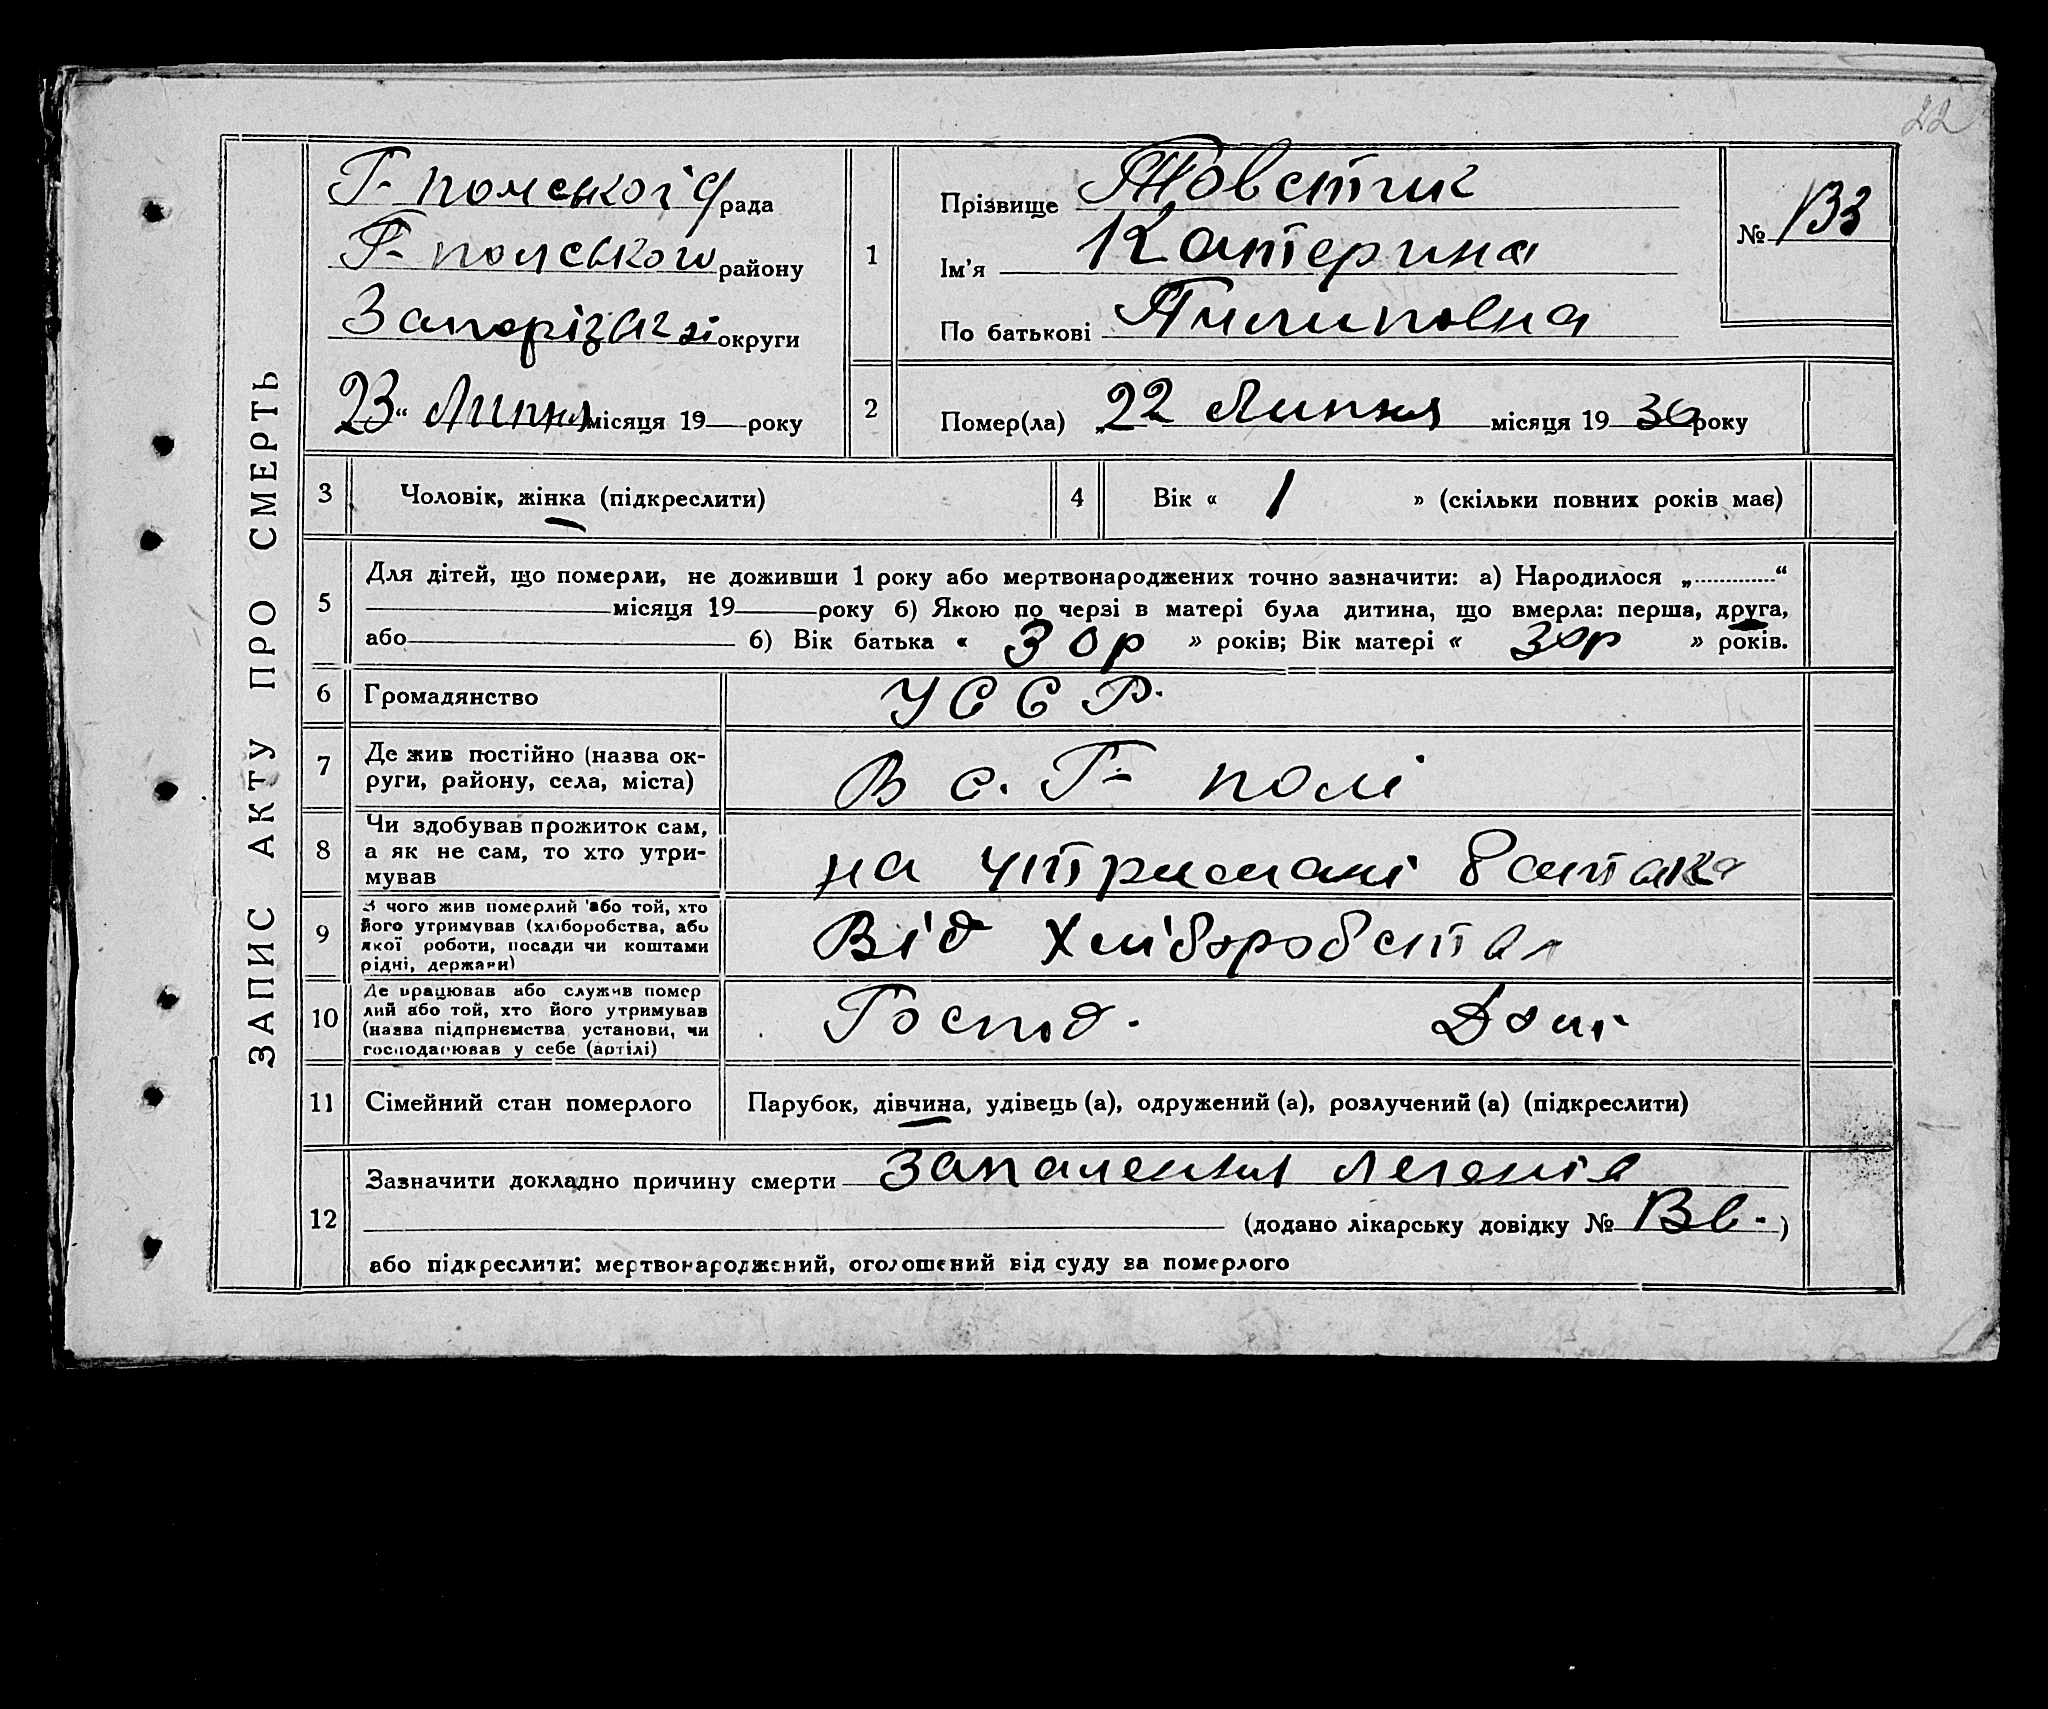 22
ЗАПИС АКТУ ПРО СМЕРТЬ
Г-польської рада
Г-польського району
Запорізької округи
23 " Липня місяця 19 року
1
Прізвище Товстик
Ім'я Катерина
По батькові Пилиповна
№ 133
2
Помер(ла) „22 Липня місяця 19 30 року
3 Чоловік, жінка (підкреслити)
4 Вік « 1 » (скільки повних років має)
5
Для дітей, що померли, не доживши 1 року або мертвонароджених точно зазначити: а) Народилося „ “
місяця 19 року б) Якою по черзі в матері була дитина, що вмерла: перша, друга,
або б) Вік батька « 30р » років; Вік матері « 30р » років.
6 Громадянство УССР.
7
Де жив постійно (назва ок-
руги, району, села, міста)
В с. Г- полі
8
Чи здобував прожиток сам,
а як не сам, то хто утри-
мував
на утримані батька
9
З чого жив померлий або той, хто
його утримував (хліборобства, або
якої роботи, посади чи коштами
рідні, держави)
Від хліборобства
10
Де працював або служив помер
лий або той, хто його утримував
(назва підприємства, установи, чи
господарював у себе (артілі)
Господ. Домі
11 Сімейний стан померлого Парубок, дівчина, удівець (а), одружений (а), розлучений (а) (підкреслити)
12
Зазначити докладно причину смерти Запалення легенів
(додано лікарську довідку № )
або підкреслити: мертвонароджений, оголошений від суду за померлого